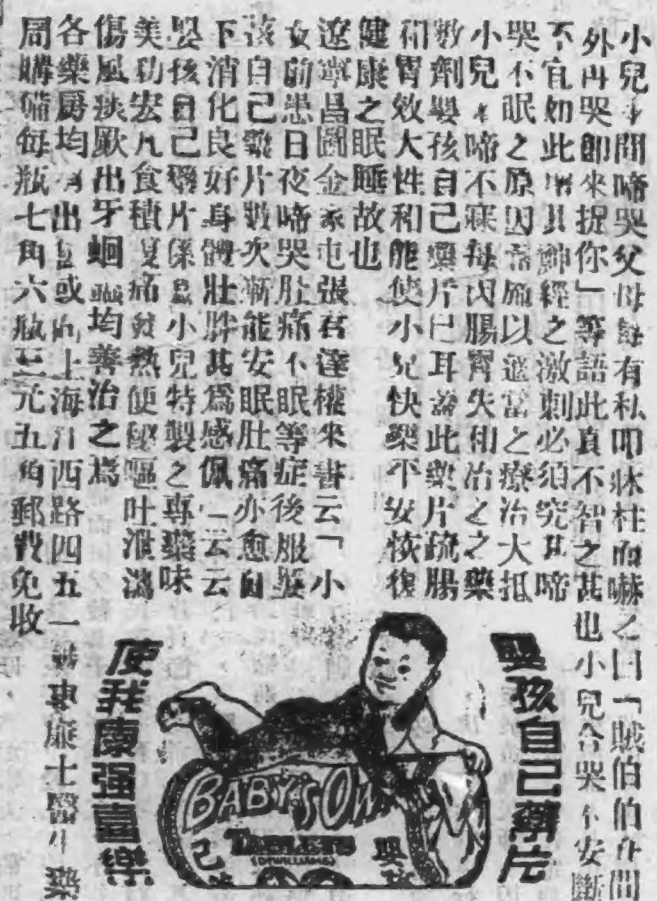 小兒夜間啼哭父母每有私叩牀柱而嚇之曰「賊伯伯在間
外再哭即來捉你」等語此真不智之甚也小兒合哭不安斷
不宜如此增其神經之激刺必須究其啼
哭不眠之原因當施以適當之療治大抵
小兒夜啼不寐每因腸胃失和治之之藥
數劑嬰孩自己藥片已耳蓋此藥片疏腸
和胃效大性和能使小兒快樂平安恢復
健康之眠睡故也
遼寧昌圖金家屯張君達權來書云「小
女前患日夜啼哭肚痛不眠等症後服嬰
孩自己藥片數次漸能安眠肚痛亦愈自
下消化良好身體壯胖甚爲感佩」云云
嬰孩自己藥片係爲小兒特製之專藥味
美功宏凡食積腹痛發熱便秘嘔吐洩瀉
傷風痰厥出牙蛔蟲均善治之焉
各藥房均有出售或向上海江西路四五一號韋廉士醫生藥
局購備每瓶七角六瓶三元五角郵費免收
嬰孩自己藥片
BABY'S OWN
TABLETS
(DR WILLIAMS)
嬰孩
自己
使我康强喜樂